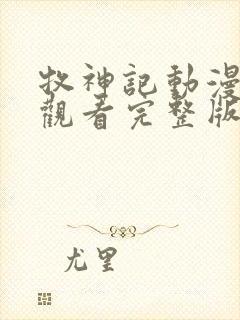 牧神記動漫
觀看完整版
尤里